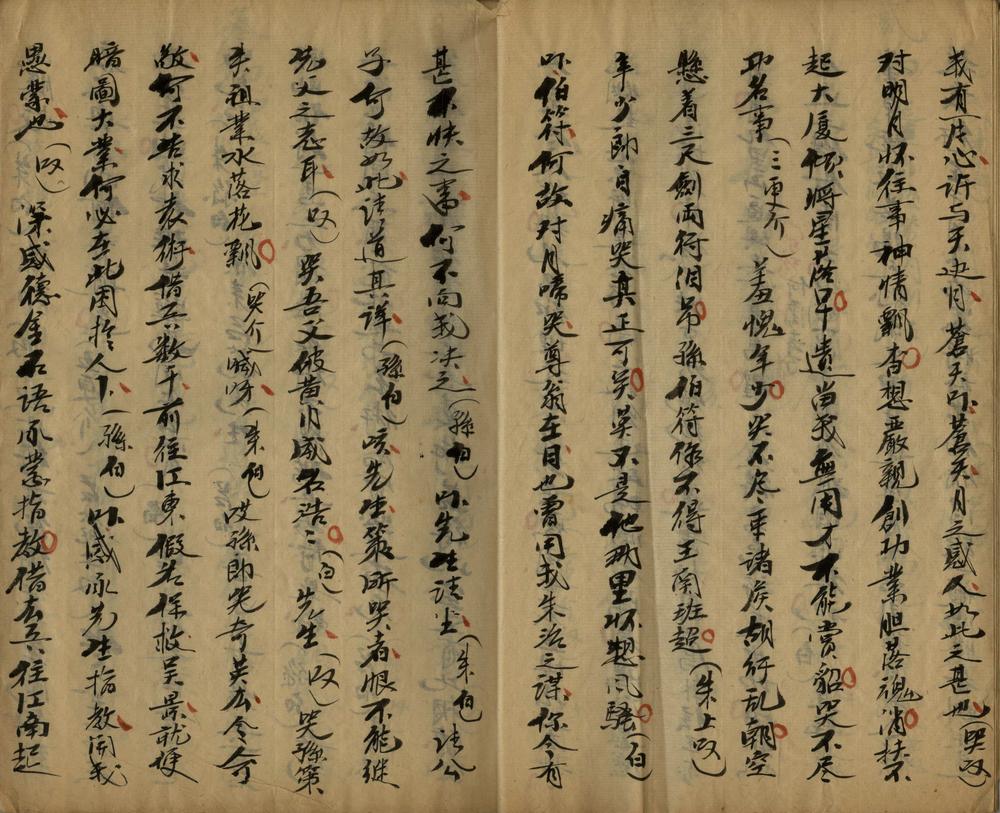 我有一片心訴与天边月蒼天吓蒼天月之感人如此之甚也(哭叹)
对明月怀往事神情飄杳想嚴親創功業胆落魂消扶不
起大厦傾將星落早遺当我無用才不能賞貂哭不尽
功名事(三更介)羞愧年少哭不尽乎諸侯胡行乱朝空
懸着三尺劍兩行泪吊孫伯符徐不得王関班超(朱上叹)
年少郎自痛哭真正可笑笑不是他那里怀想风騷(白)
吓伯符何故对月啼哭尊翁在日也曾用我朱治之謀你今有
甚不快之事何不向我决之(孫白)吓先生請坐(朱白)請公
子何故如此請道其詳(孫白)咳先生策所哭者恨不能继
先父之志耳(叹)哭吾父破黄月威名浩々(白)先生(叹)哭孫策
失祖業水落花飄(哭介)喊呀(朱白)哎孫郎哭奇英么令尔
敌何不告求袁術借兵数千前往江東假若保救吴景就便
暗圖大業何必在此困拎人下(孫白)吓感承先生指教開我
愚蒙也(叹)深感德金石語承蒙指教借去兵往江南起